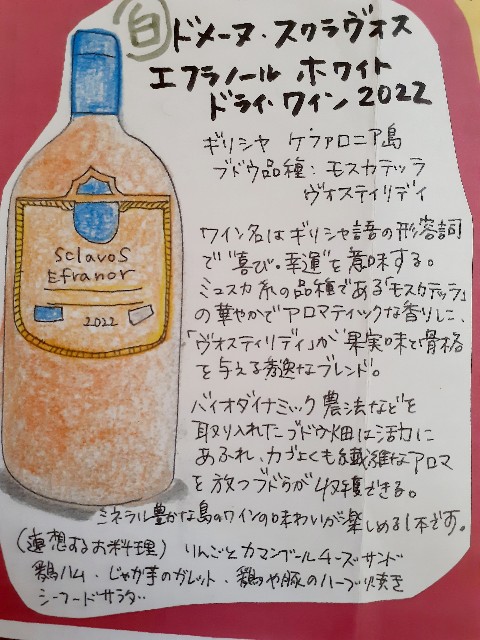 白 ドメーヌ・スクラヴォス
エフラノール ホワイト
ドライ・ワイン 2022
ギリシャ ケファロニア島
ブドウ品種: モスカテッラ
ヴォスティリディ
ワイン名はギリシャ語の形容詞
で"喜び・幸運"を意味する。
ミュスカ系の品種である「モスカテッラ」
の華やかでアロマティックな香りに、
「ヴォスティリディ」が果実味と骨格
を与える秀逸なブレンド。
バイオダイナミック農法などを
取り入れたブドウ畑は活力に
あふれ、力づよくも繊維なアロマ
を放つブドウが収穫できる。
ミネラル豊かな島のワインの味わいが楽しめる1本です。
(連想するお料理) りんごとカマンベールチーズサンド
鶏ハム・じゃが芋のガレット、鶏や豚のハーブ焼き
シーフードサラダ
Sclavos
Efranor
2022